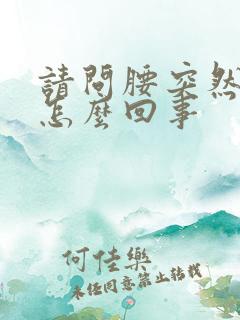 請問腰突然
怎麼回事
何佳樂
未经同意禁止转载